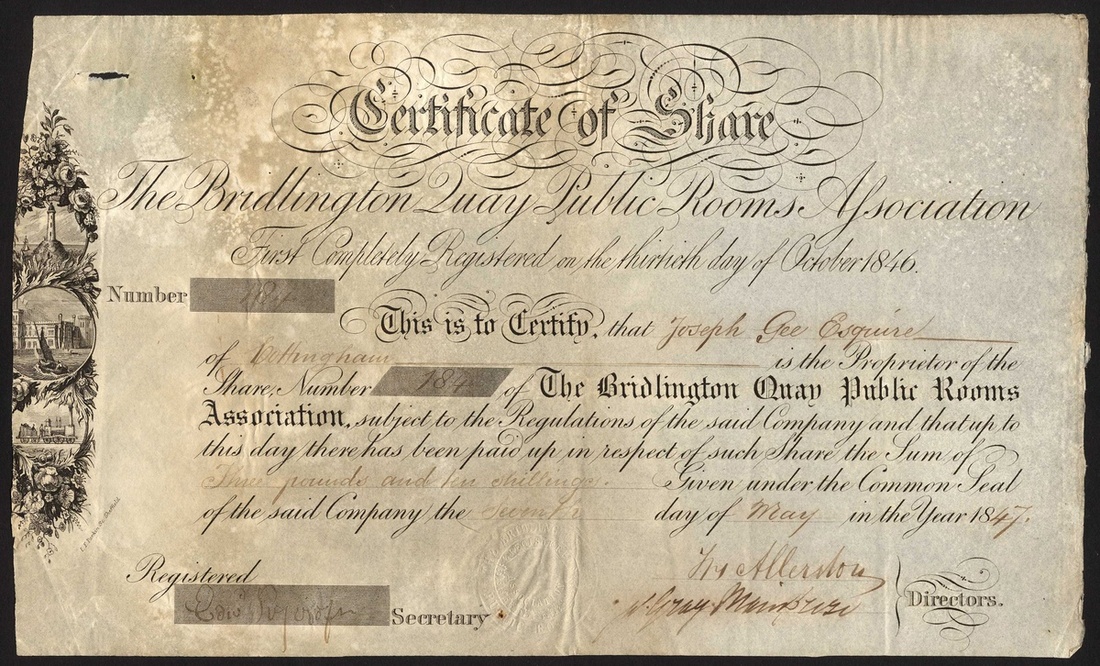 Certificate of Share
The Bridlington Quay Public Rooms Association
First Completely Registered on the thirtieth day of October 1846.
Number 184
This is to Certify, that Joseph Gee Esquire
of Cottingham is the Proprietor of the
Share, Number 184 of The Bridlington Quay Public Rooms
Association, subject to the Regulations of the said Company and that up to
this day there has been paid up in respect of such Share the Sum of
Three pounds and ten shillings. Given under the Common Seal
of the said Company the Seventh day of May in the Year 1847.
Registered
Secretary
Allerston
Directors.